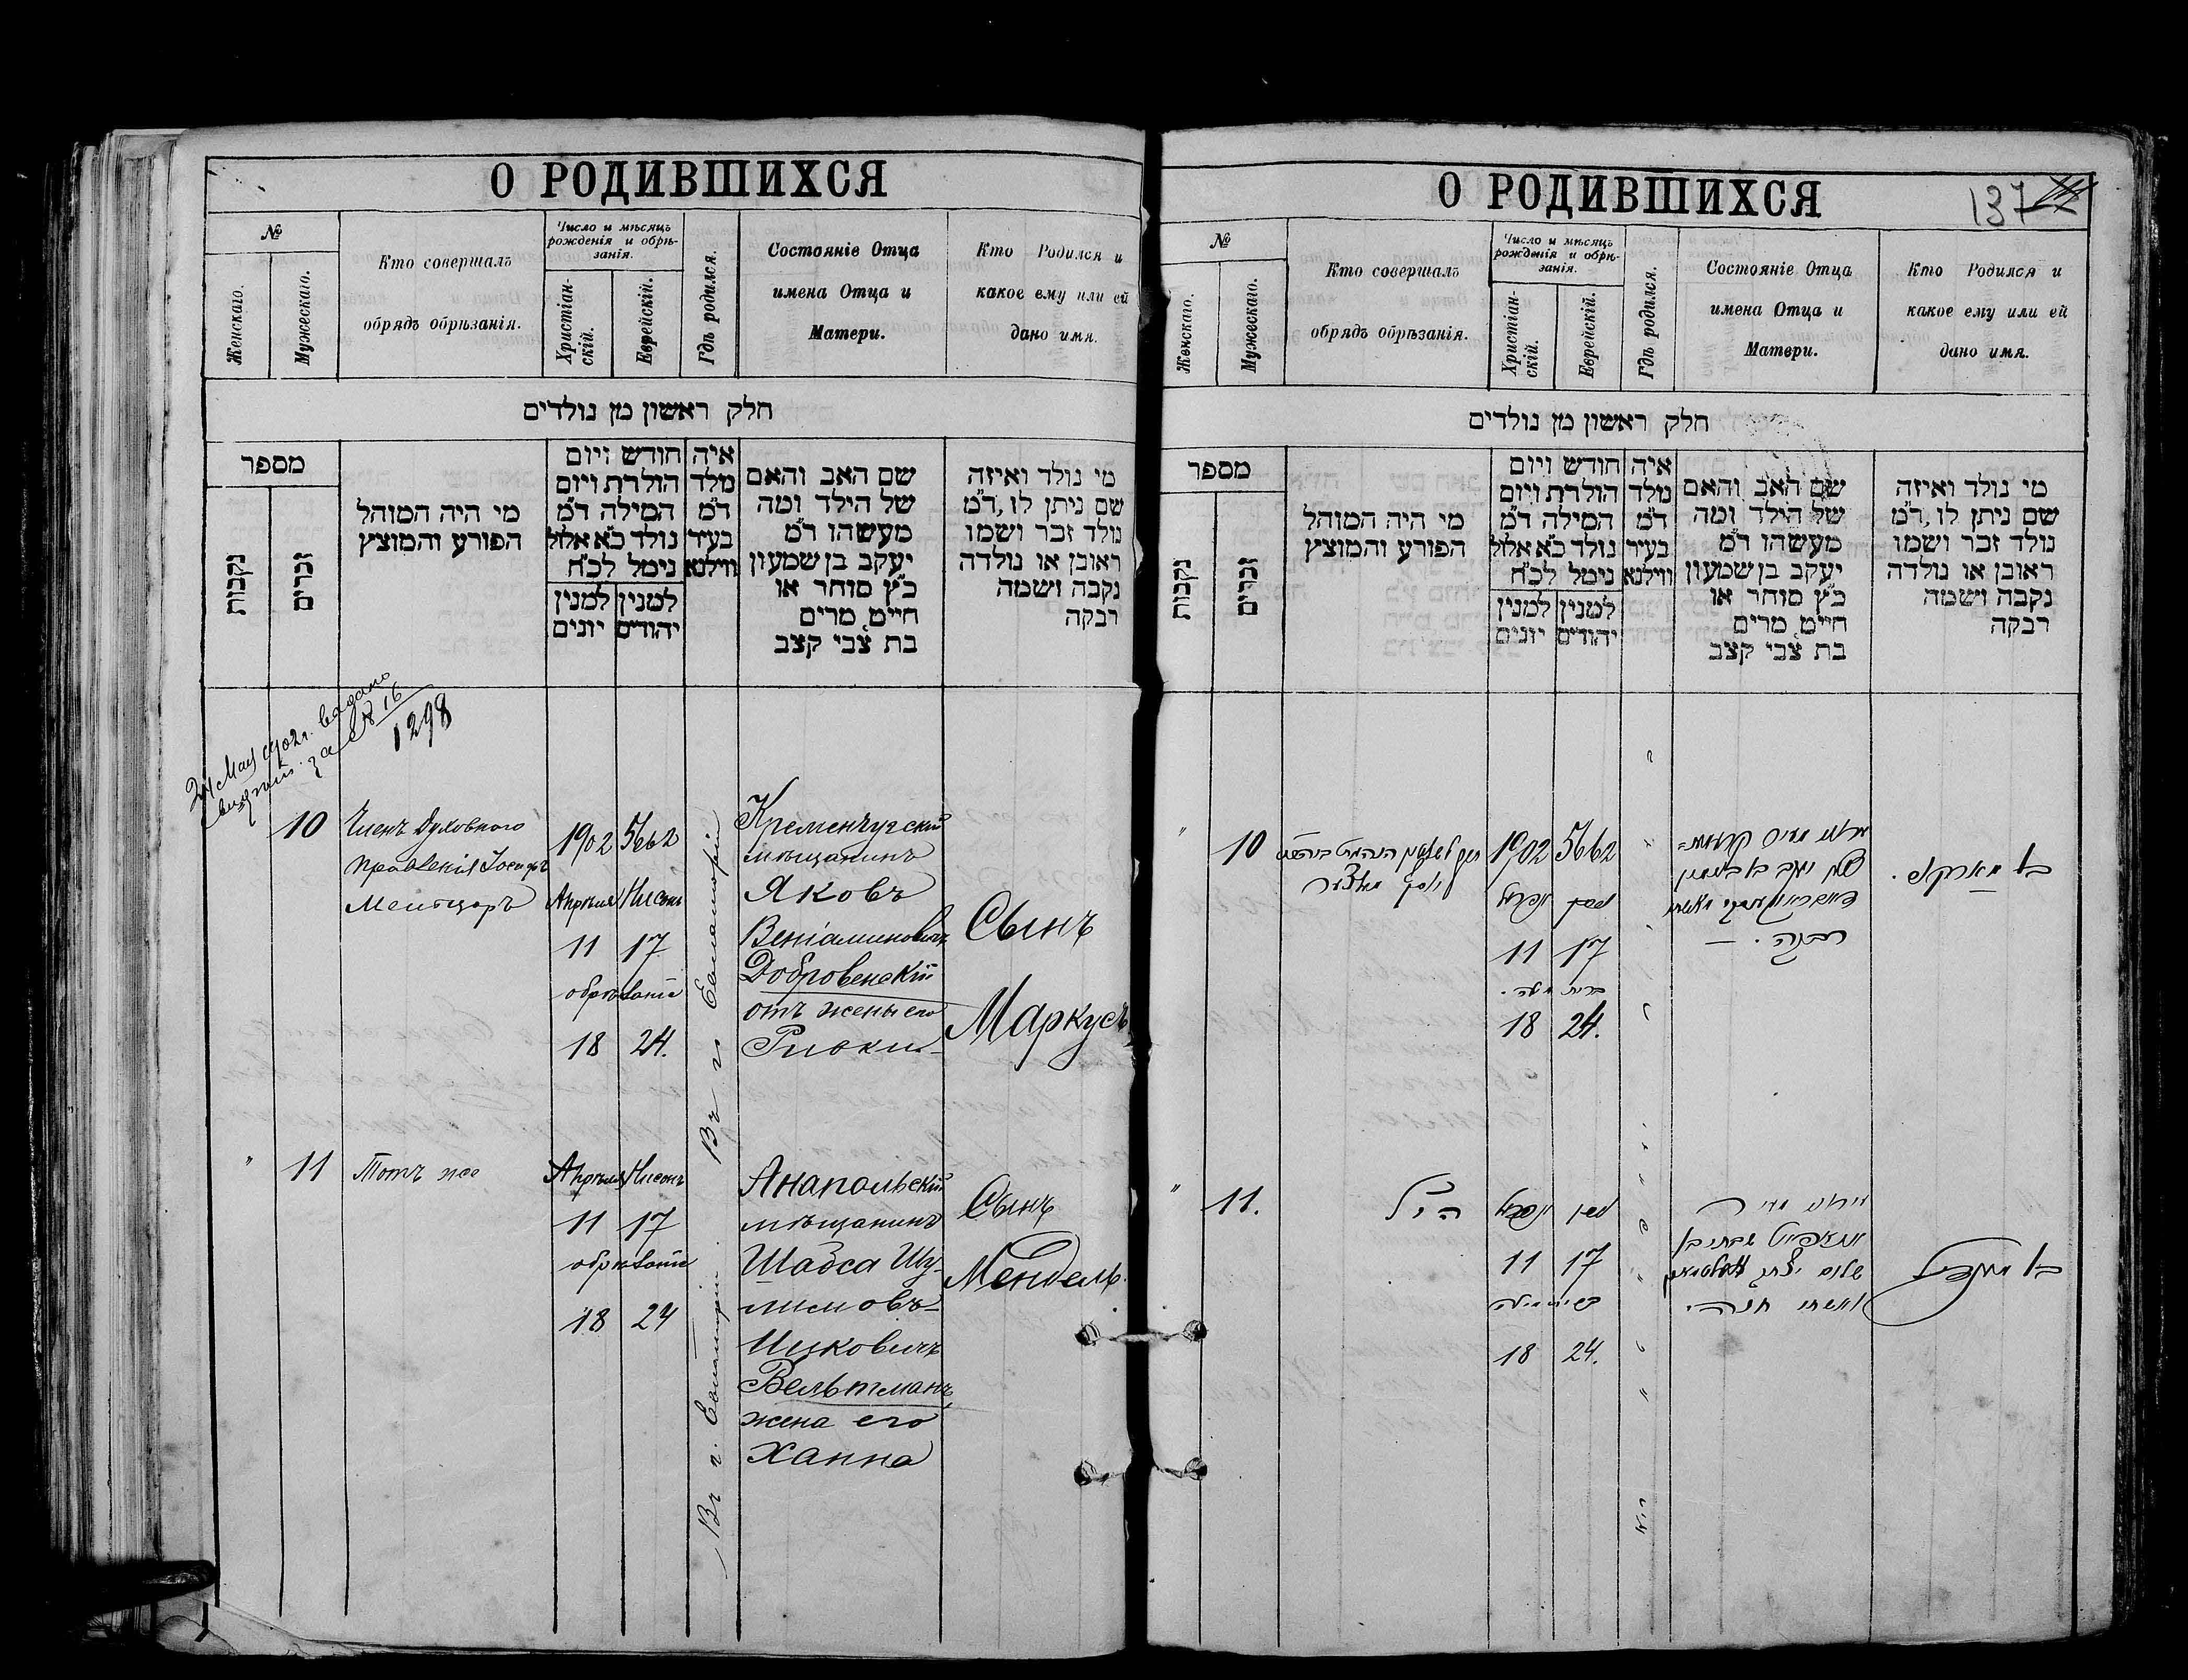 О РОДИВШИХСЯ
№
Женскаго.
Мужескаго.
Кто совершалъ
обрядъ обрѣзанія.
Число и мѣсяцъ
рожденія и обрѣ-
занія.
Христіан-
скій.
Еврейскій.
Гдѣ родился.
Состояніе Отца
имена Отца и
Матери.
Кто Родился и
какое ему или ей
дано имя.
חלק ראשון מן נולדים
מספר
נקבות
זכרים
מי היה המוהל
הפורע והמוצץ
איה חודש ויום
מלד הולדת ויום
ד״מ המילה ד״מ
בעיר נולד כ״א אלול
ווילנא נימל לכ״ח
למנין למנין
יהודים יונים
שם האב והאם
של הילד ומה
מעשהו ד״מ
יעקב בן שמעון
כ״ץ סוחר או
חייט מרים
בת צבי קצב
מי נולד ואיזה
שם ניתן לו, ד״מ
נולד זכר ושמו
ראובן או נולדה
נקבה ושמה
רבקה
24 Мая 1902 г. выдано
за № 16
1298
10
Членъ Духовнаго
Правленія Іосифъ
Менцеръ
1902 5662
Апрѣля Нисонъ
11 17
обрѣзаніе
18 24.
Въ г. Евпаторіи
Кременчугскій
мѣщанинъ
Яковъ
Веніаминовичъ
Добровенскій
отъ жены его
Ривки
Сынъ
Маркусъ
" 11
Тотъ же
Апрѣля Нисонъ
11 17
обрѣзаніе
18 24
Въ г. Евпаторіи
Анапольскій
мѣщанинъ
Шабса Шу-
лимовъ-
Ицковичъ
Вельтманъ
жена его
Ханна
Сынъ
Мендель.
О РОДИВШИХСЯ
137
№
Женскаго.
Мужескаго.
Кто совершалъ
обрядъ обрѣзанія.
Число и мѣсяцъ
рожденія и обрѣ-
занія.
Христіан-
скій.
Еврейскій.
Гдѣ родился.
Состояніе Отца
имена Отца и
Матери.
Кто Родился и
какое ему или ей
дано имя.
חלק ראשון מן נולדים
מספר
נקבות
זכרים
מי היה המוהל
הפורע והמוצץ
איה חודש ויום
מלד הולדת ויום
ד״מ המילה ד״מ
בעיר נולד כ״א אלול
ווילנא נימל לכ״ח
למנין למנין
יהודים יונים
שם האב והאם
של הילד ומה
מעשהו ד״מ
יעקב בן שמעון
כ״ץ סוחר או
חייט מרים
בת צבי קצב
מי נולד ואיזה
שם ניתן לו, ד״מ
נולד זכר ושמו
ראובן או נולדה
נקבה ושמה
רבקה
" 10
1902 5662
אפריל ניסן
11 17
ברית מילה.
18 24.
רבקה. —
בן מארקוס.
" 11.
הנ״ל
אפריל ניסן
11 17
ברית מילה
18 24.
ואשתו חנה
בן מענדיל